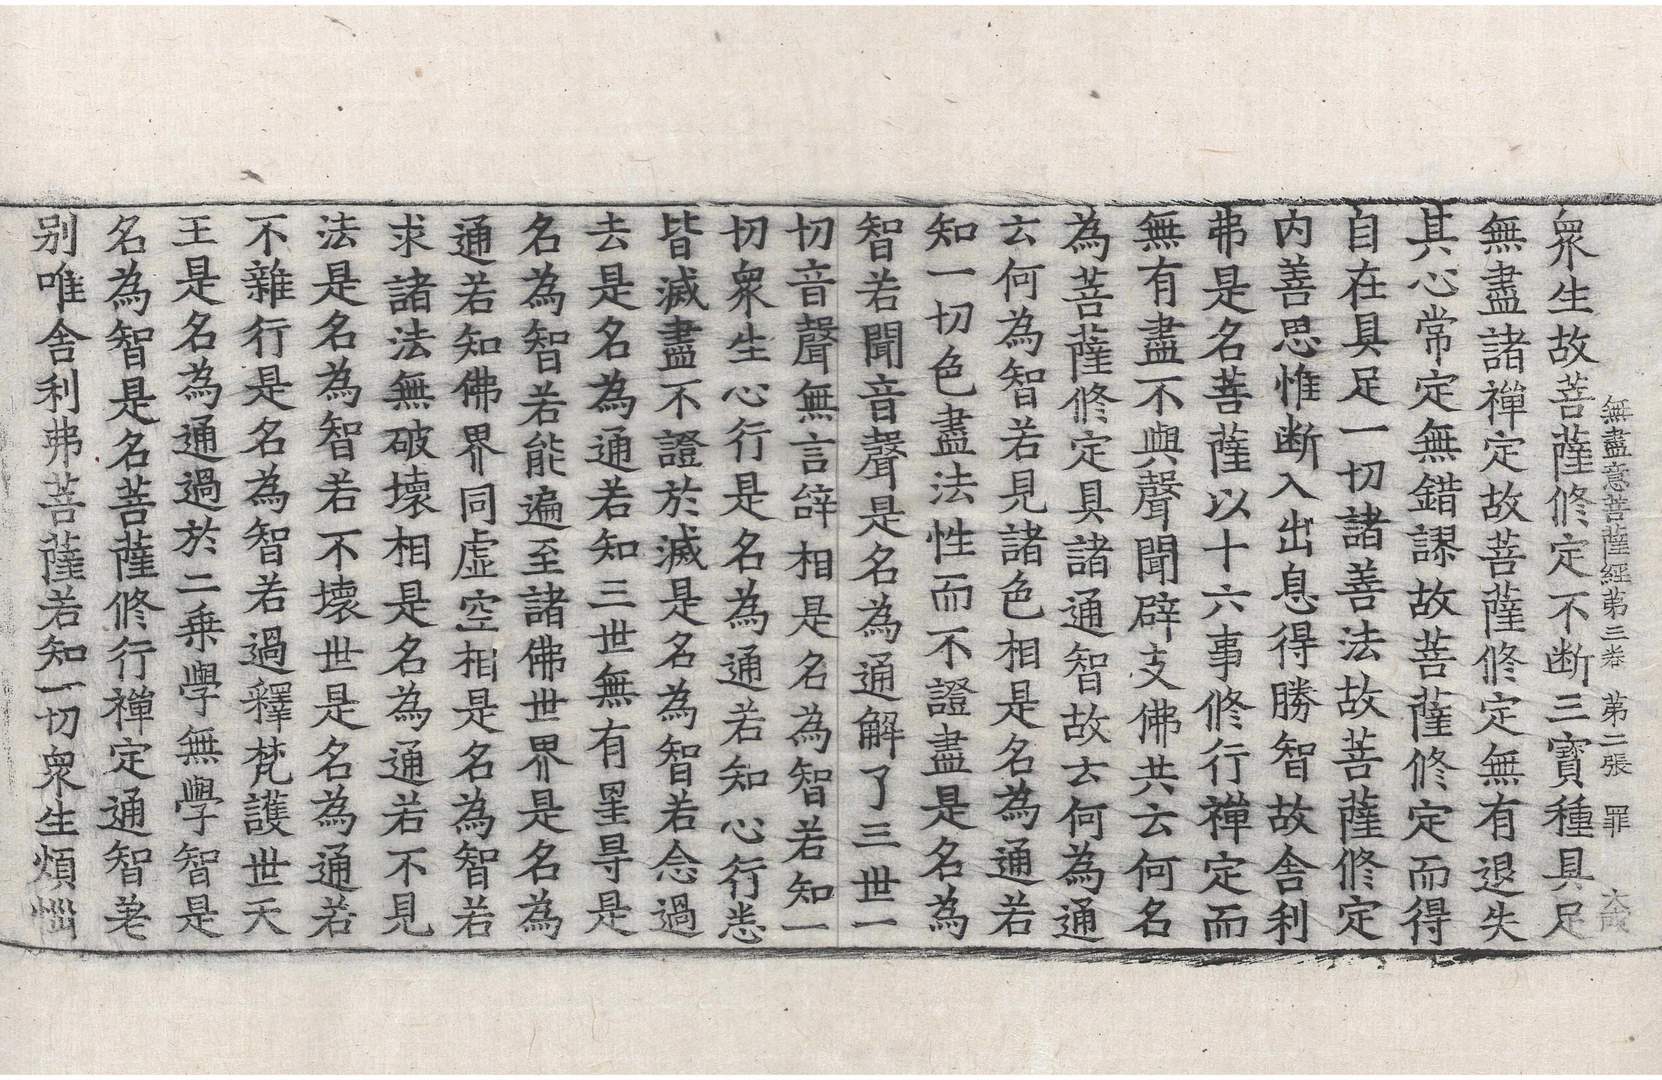 無盡意菩薩經第三卷　第二張　罪　大成
衆生故菩薩修定不断三寶種具足
無盡諸禪定故菩薩修定無有退失
其心常定無錯謬故菩薩修定而得
自在具足一切諸善法故菩薩修定
内善思惟断入出息得勝智故舍利
弗是名菩薩以十六事修行禪定而
無有盡不與聲聞辟支佛共云何名
為菩薩修定具諸通智故云何為通
云何為智若見諸色相是名為通若
知一切色盡法性而不證盡是名為
智若聞音聲是名為通解了三世一
切音聲無言辝相是名為智若知一
切衆生心行是名為通若知心行悉
皆滅盡不證於滅是名為智若念過
去是名為通若知三世無有罣㝵是
名為智若能遍至諸佛世界是名為
通若知佛界同虛空相是名為智若
求諸法無破壞相是名為通若不見
法是名為智若不壞世是名為通若
不雜行是名為智若過釋梵護世天
王是名為通過於二乗學無學智是
名為智是名菩薩修行禪定通智差
别唯舍利弗菩薩若知一切衆生煩惱